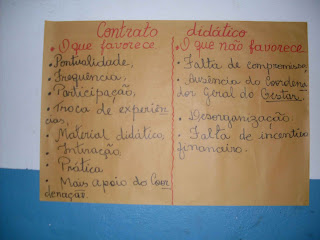 Contrato didático
• O que favorece.
• Pontualidade,
• Frequência,
• Participação,
• Troca de experiên
cias,
• Material didático,
• Interação
• Prática
• Mais apoio da Coor
denação.
• O que não favorece
• Falta de compromisso,
• Ausência do Coordena
dor Geral do Gestar.
• Desorganização.
• Falta de incentivo
financeiro.